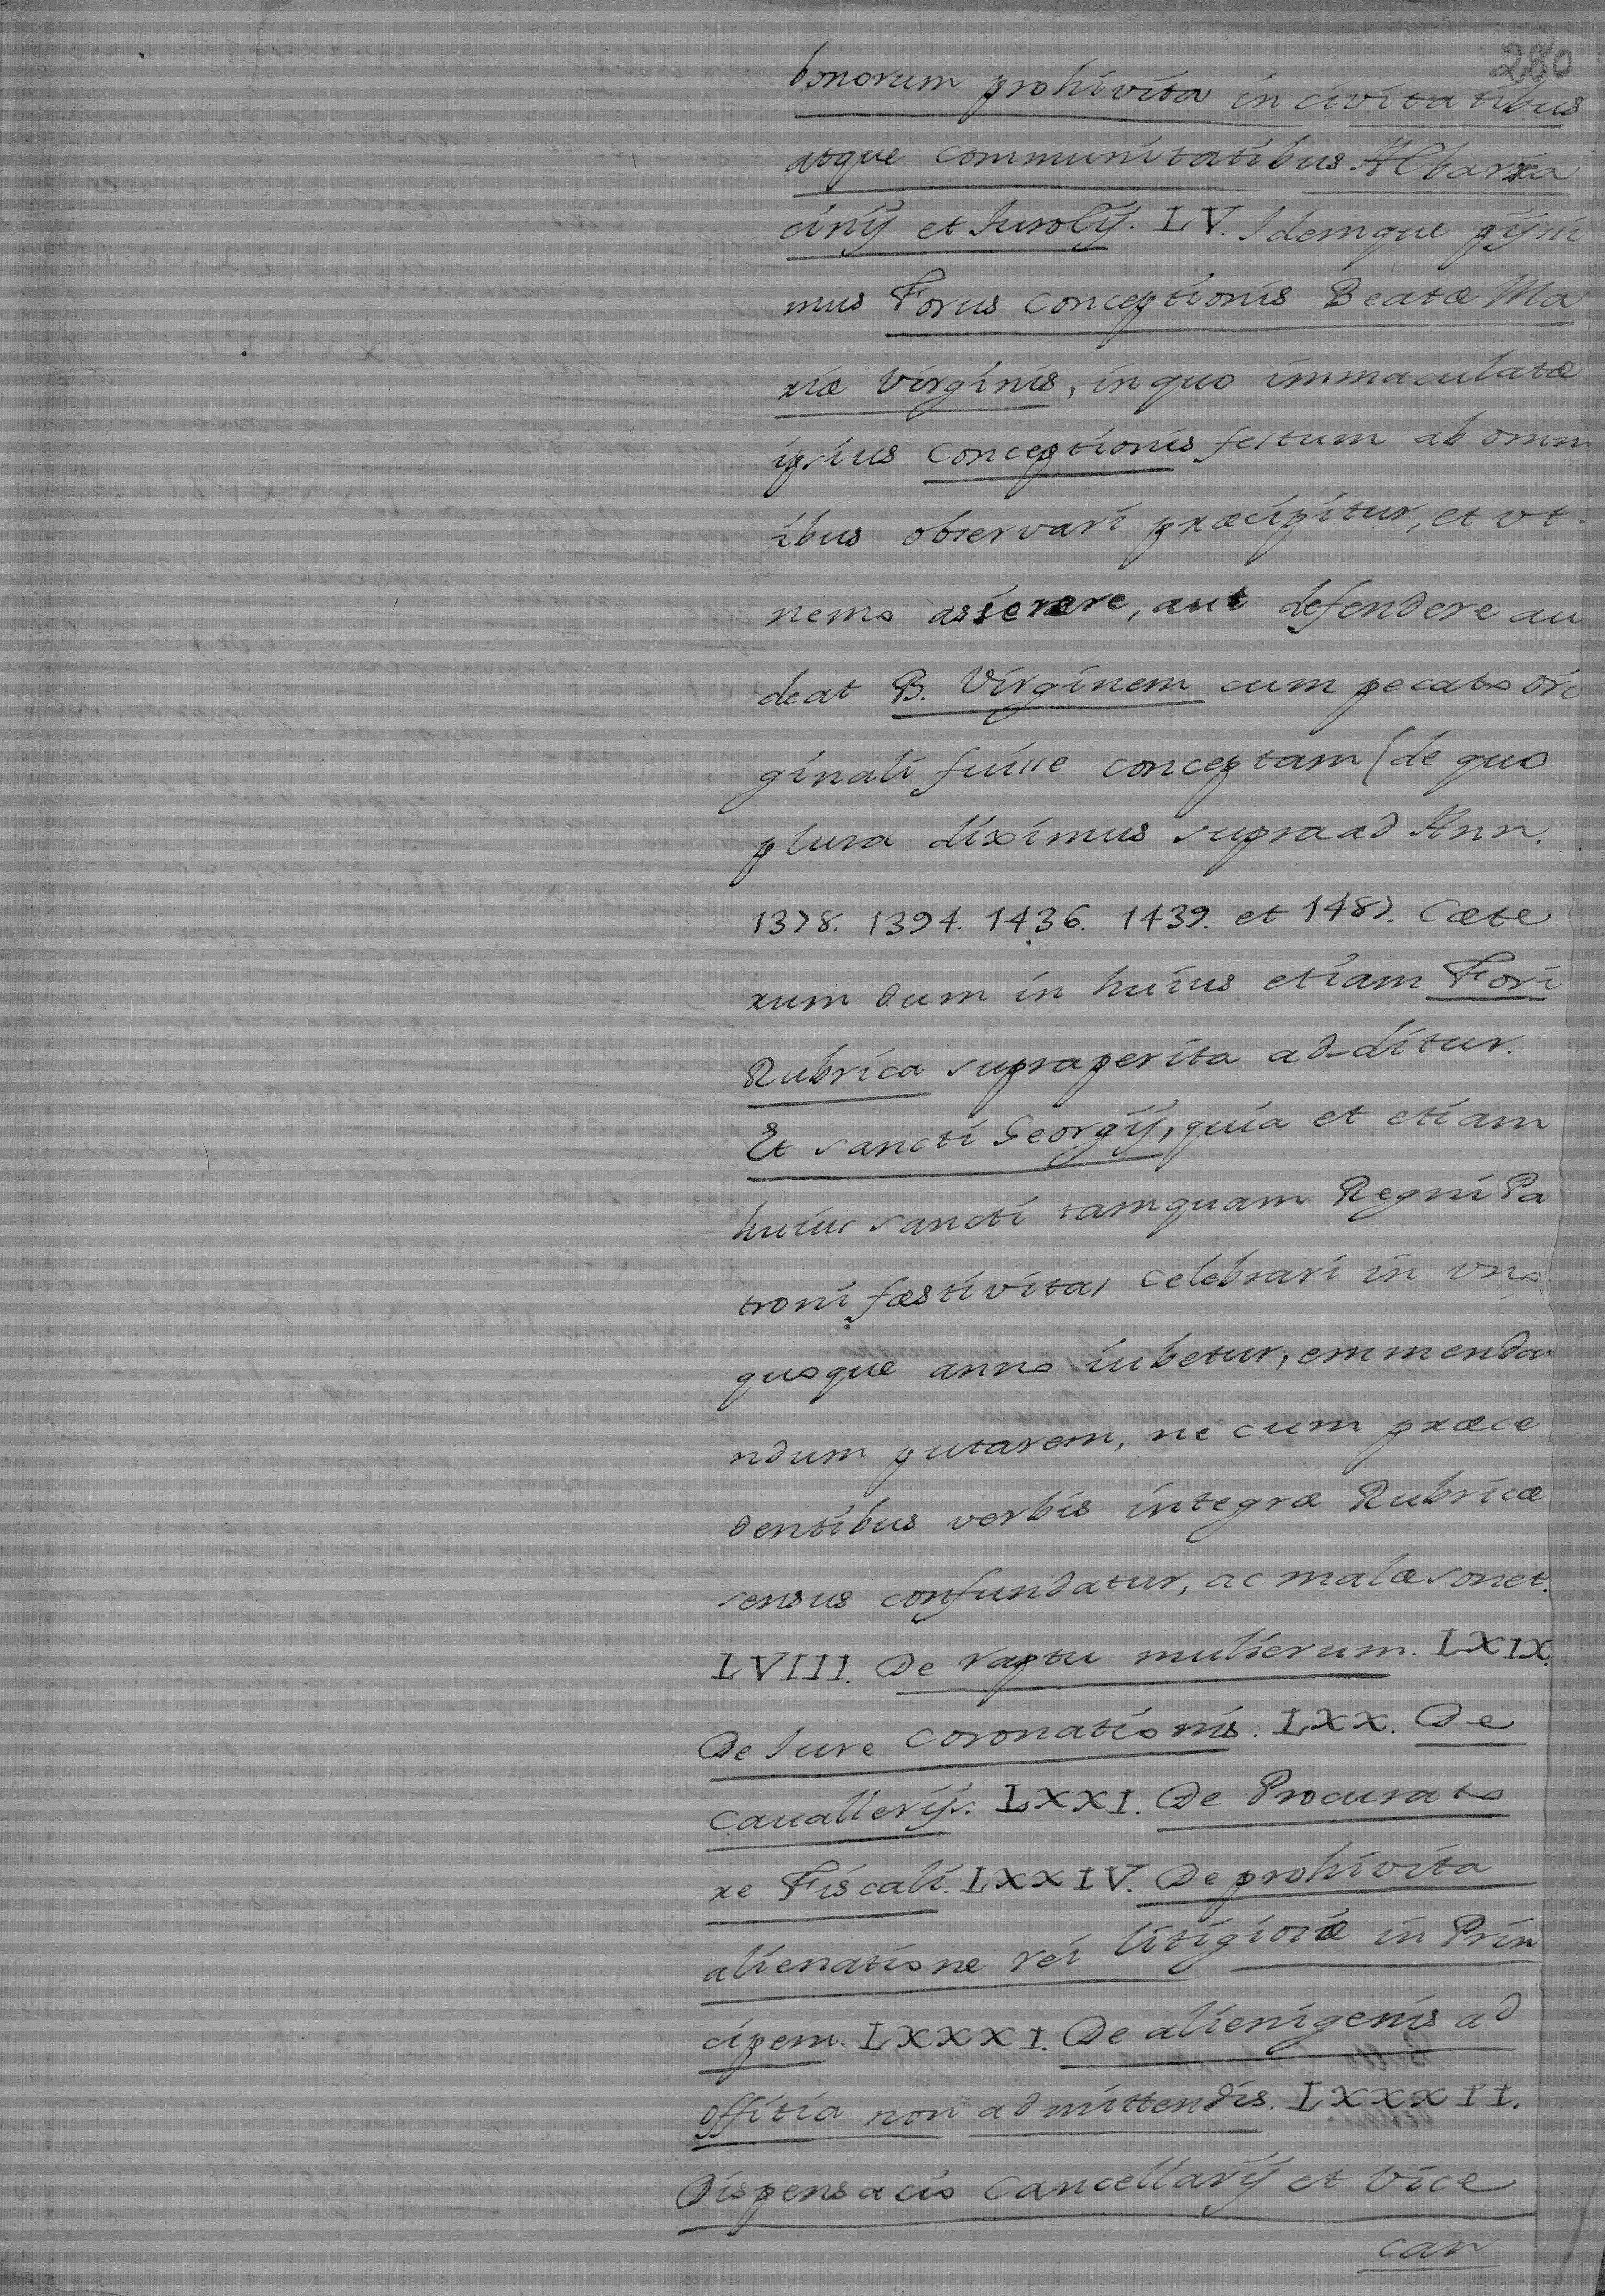 280
bonorum prohivita in civitatibus
atque communitatibus Albarra
cinij et Turolij. LV. Idemque pijssi
mus Forus Conceptionis Beatæ Ma
riæ Virginis, in quo immaculatæ
ipsius Conceptionis festum ab omn
ibus observari præcipitur, et vt
nemo asserere, aut defendere au
deat B. Virginem cum pecato ori
ginali fuisse conceptam (de quo
plura diximus supra ad Ann.
1378. 1394. 1436. 1439. et 1487. Cæte
rum dum in huius etiam Fori
Rubrica supraperita ad-ditur.
Et sancti Georgij, quia et etiam
huius sancti tamquam Regni Pa
troni fæstivitas celebrari in vno
quoque anno iubetur, emmenda
ndum putarem, ne cum præce
dentibus verbis integræ Rubricæ
sensus confundatur, ac malæ sonet.
LVIII. De raptu mulierum. LXIX.
De Iure Coronationis. LXX. De
Cauallerijs. LXXI. De Procurato
re Fiscali. LXXIV. De prohivita
alienatione rei litigiosæ in Prin
cipem. LXXXI. De alienigenis ad
Offitia non admittendis. LXXXII.
Dispensacio Cancellarij et Vice
can